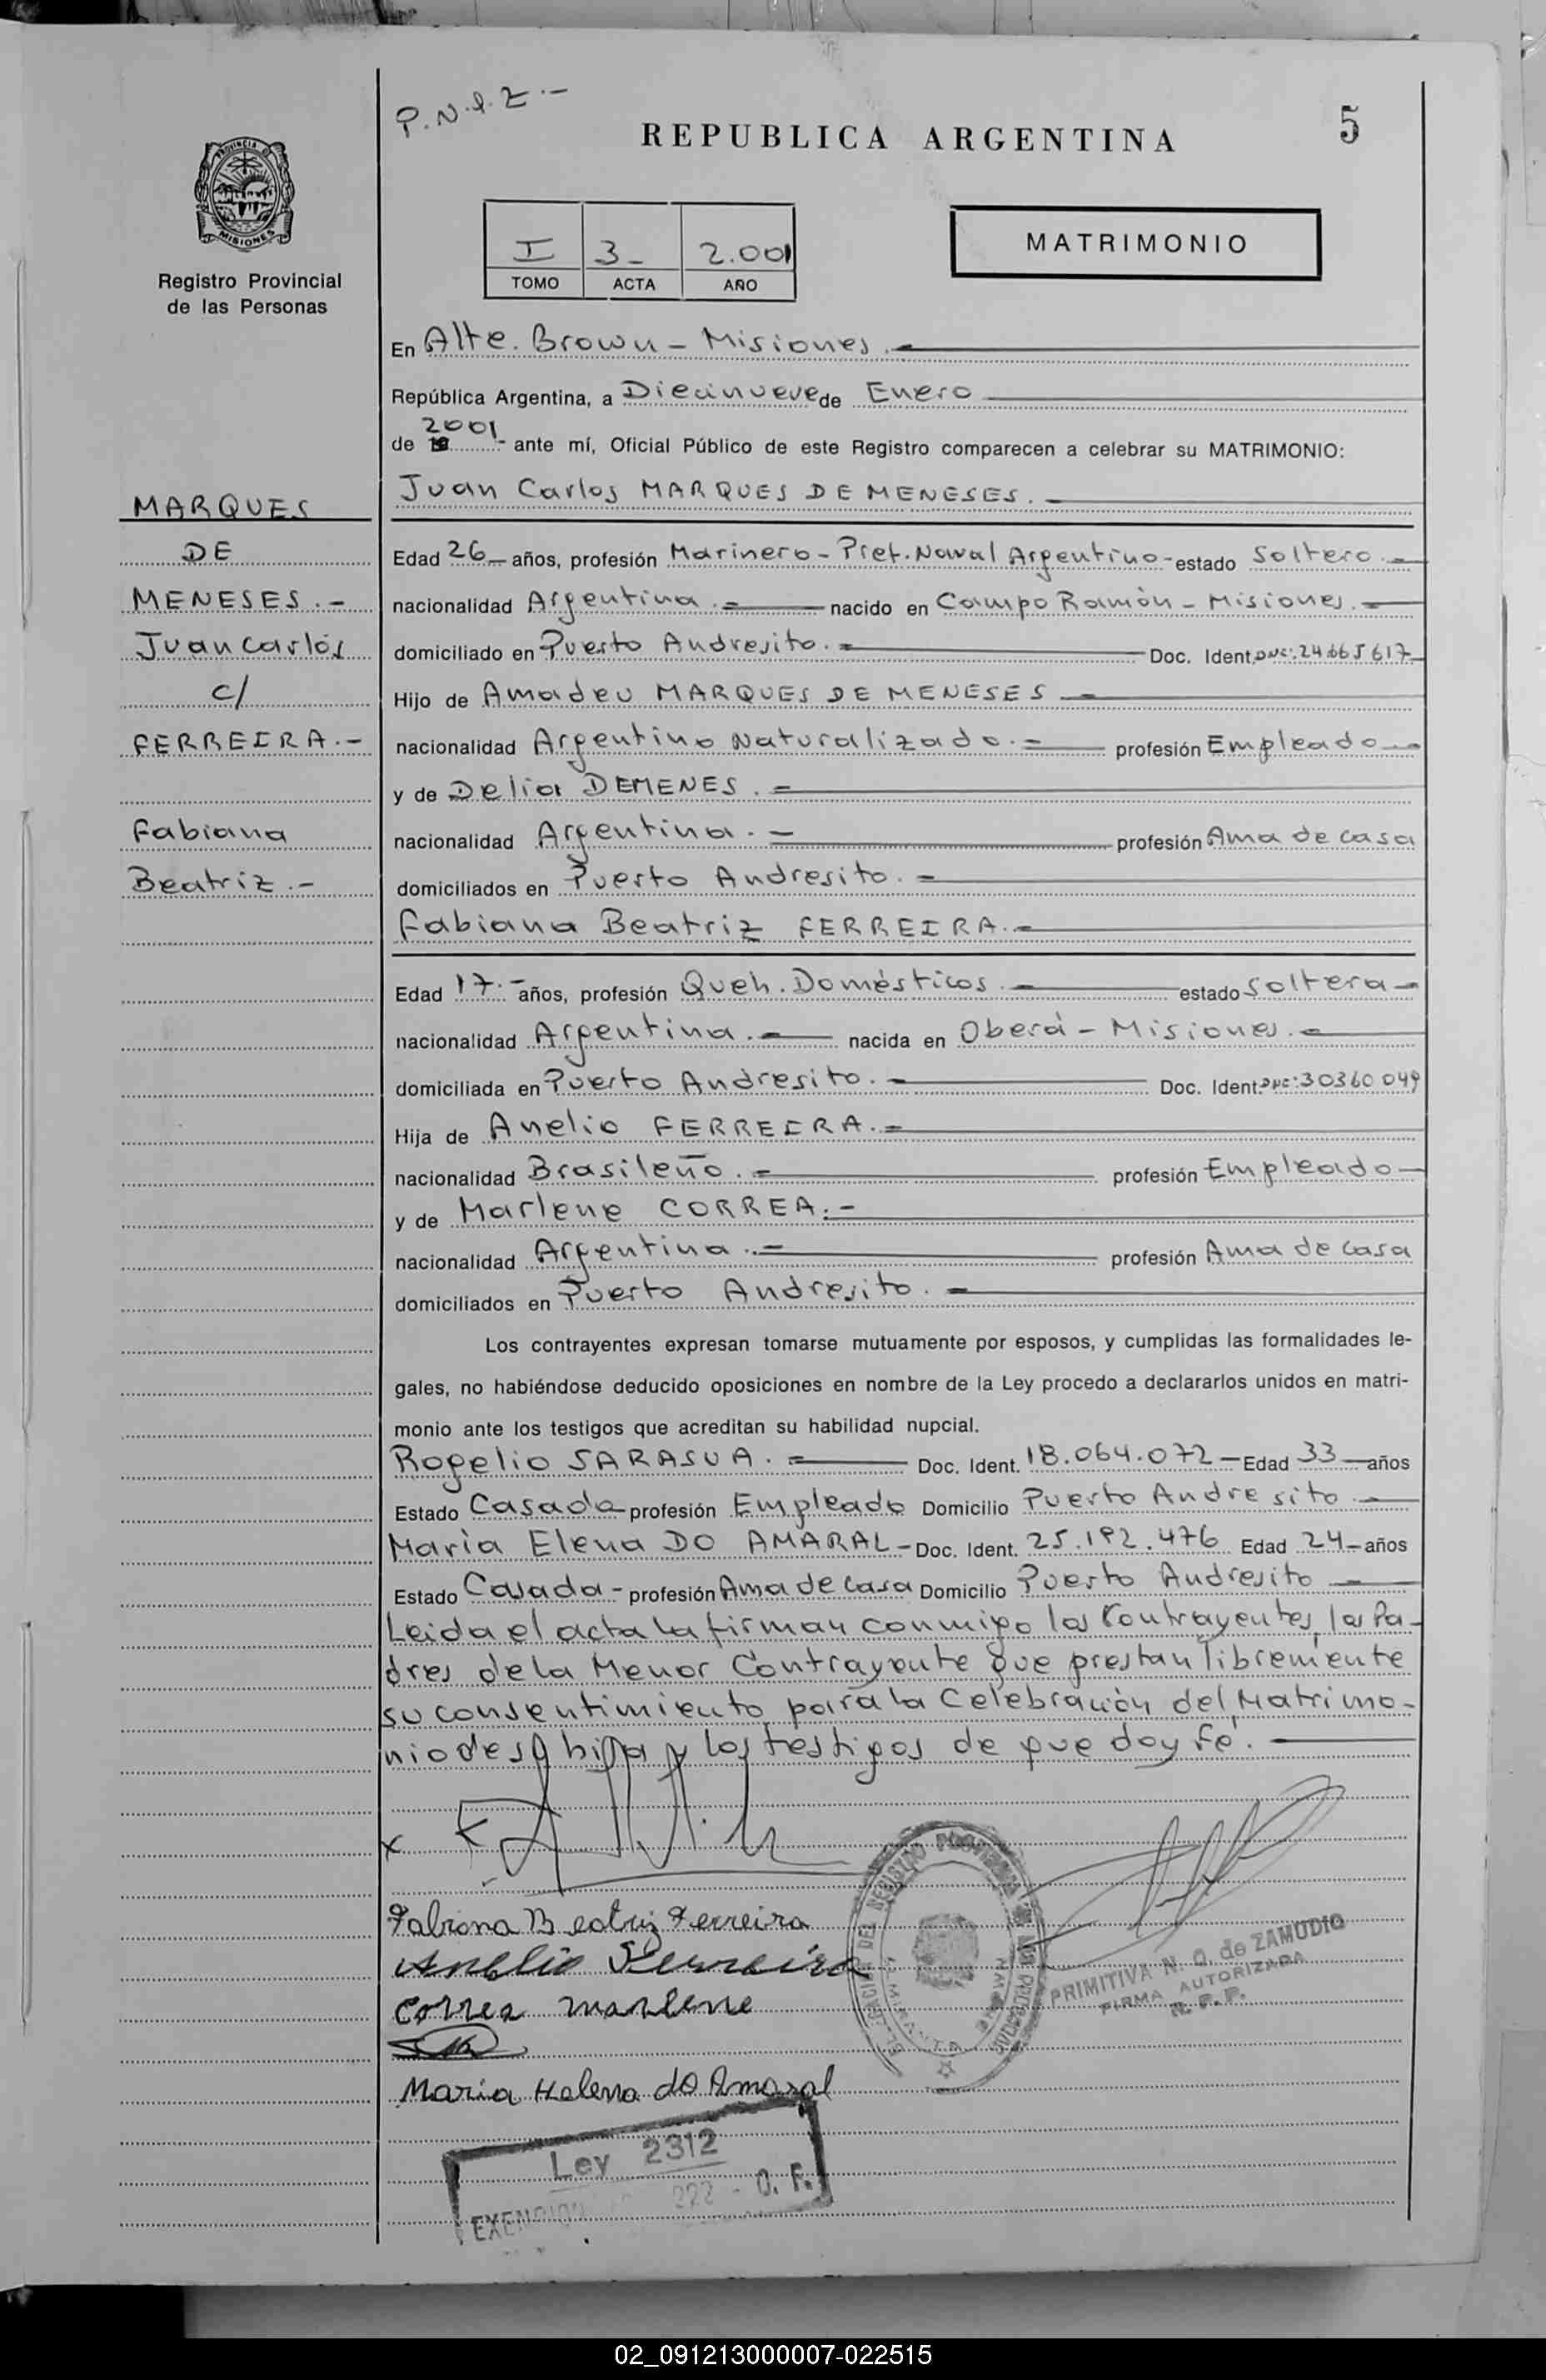 P.N.I.Z.-
REPUBLICA ARGENTINA
5
PROVINCIA DE
MISIONES
Registro Provincial
de las Personas
I 3- 2.001
TOMO ACTA AÑO
MATRIMONIO
En Alte. Brown - Misiones.-
República Argentina, a Diecinueve de Enero
de 19 2001 - ante mí, Oficial Público de este Registro comparecen a celebrar su MATRIMONIO:
Juan Carlos MARQUES DE MENESES.-
MARQUES
DE
MENESES.-
Juan Carlos
c/
FERREIRA.-
Fabiana
Beatriz.-
Edad 26- años, profesión Marinero - Pref. Naval Argentino - estado Soltero.-
nacionalidad Argentina.- nacido en Campo Ramón - Misiones.-
domiciliado en Puerto Andresito.- Doc. Ident. DNI: 24.665617-
Hijo de Amadeu MARQUES DE MENESES -
nacionalidad Argentino Naturalizado.- profesión Empleado-
y de Delia DEMENES.-
nacionalidad Argentina.- profesión Ama de casa
domiciliados en Puerto Andresito.-
Fabiana Beatriz FERREIRA.-
Edad 17.- años, profesión Queh. Domésticos.- estado Soltera-
nacionalidad Argentina.- nacida en Oberá - Misiones.-
domiciliada en Puerto Andresito.- Doc. Ident. DNI: 30360 049
Hija de Anelio FERREIRA.-
nacionalidad Brasileño.- profesión Empleado-
y de Marlene CORREA.-
nacionalidad Argentina.- profesión Ama de casa
domiciliados en Puerto Andresito.-
Los contrayentes expresan tomarse mutuamente por esposos, y cumplidas las formalidades le-
gales, no habiéndose deducido oposiciones en nombre de la Ley procedo a declararlos unidos en matri-
monio ante los testigos que acreditan su habilidad nupcial.
Rogelio SARASUA.- Doc. Ident. 18.064.072- Edad 33- años
Estado Casado profesión Empleado Domicilio Puerto Andresito.-
Maria Elena DO AMARAL- Doc. Ident. 25.192.476 Edad 24- años
Estado Casada- profesión Ama de casa Domicilio Puerto Andresito -
Leida el acta la firman conmigo los Contrayentes, los Pa-
dres de la Menor Contrayente que prestan libremente
su consentimiento para la Celebración del Matrimo-
nio de su hija y los testigos de que doy fé.-
x
Fabiana Beatriz Ferreira
Anelio Ferreira
Correa Marlene
Maria Helena do Amaral
DEL REGISTRO PROVINCIAL DE LAS PERSONAS
ALMIRANTE BROWN
PRIMITIVA N. G. de ZAMUDIO
FIRMA AUTORIZADA
R. P. P.
Ley 2312
EXENCION 222 - O. F.
02_091213000007-022515